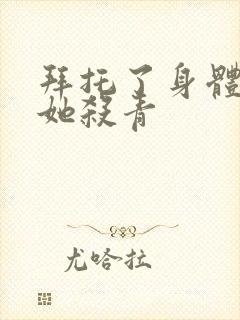 拜托了身體
她殺青
尤哈拉